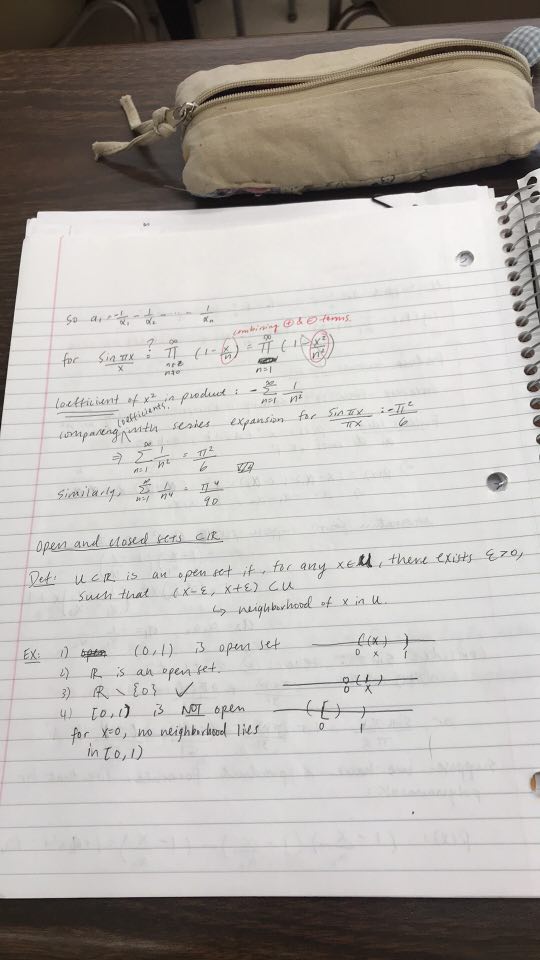 So a₁ = -1/α₁ - 1/α₂ - ... - 1/αₙ
combining ⊕ & ⊖ terms.
for sin πx / x ?= ∏_{n∈Z, n≠0}^{∞} (1 - x/n) = ∏_{n=1}^{∞} (1 - x²/n²)
coefficient of x² in product: - ∑_{n=1}^{∞} 1/n²
comparing coefficients with series expansion for sin πx / πx : -π²/6
⇒ ∑_{n=1}^{∞} 1/n² = π²/6
Similarly, ∑_{n=1}^{∞} 1/n⁴ = π⁴/90
Open and closed sets ⊂ℝ
Def: U⊂ℝ is an open set if, for any x∈U, there exists ε>0,
such that (x-ε, x+ε) ⊂U
↳ neighborhood of x in U.
EX: 1) (0,1) is open set ( (x) ) 0 x 1
2) ℝ is an open set.
3) ℝ \ {0} ✓ 0 x
4) [0,1) is NOT open ( [ ) ) 0 1
for x=0, no neighborhood lies
in [0,1)